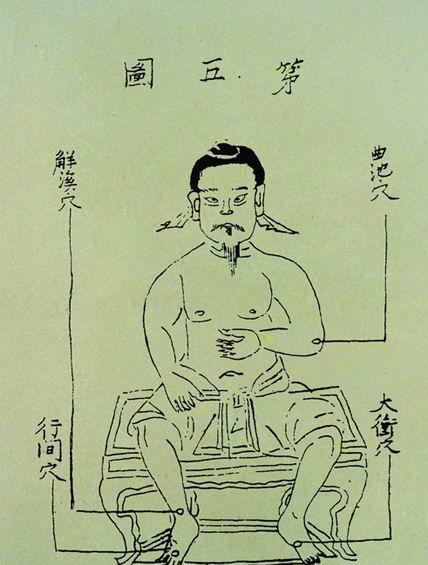 第五圖
曲池穴
解溪穴
大衝穴
行间穴